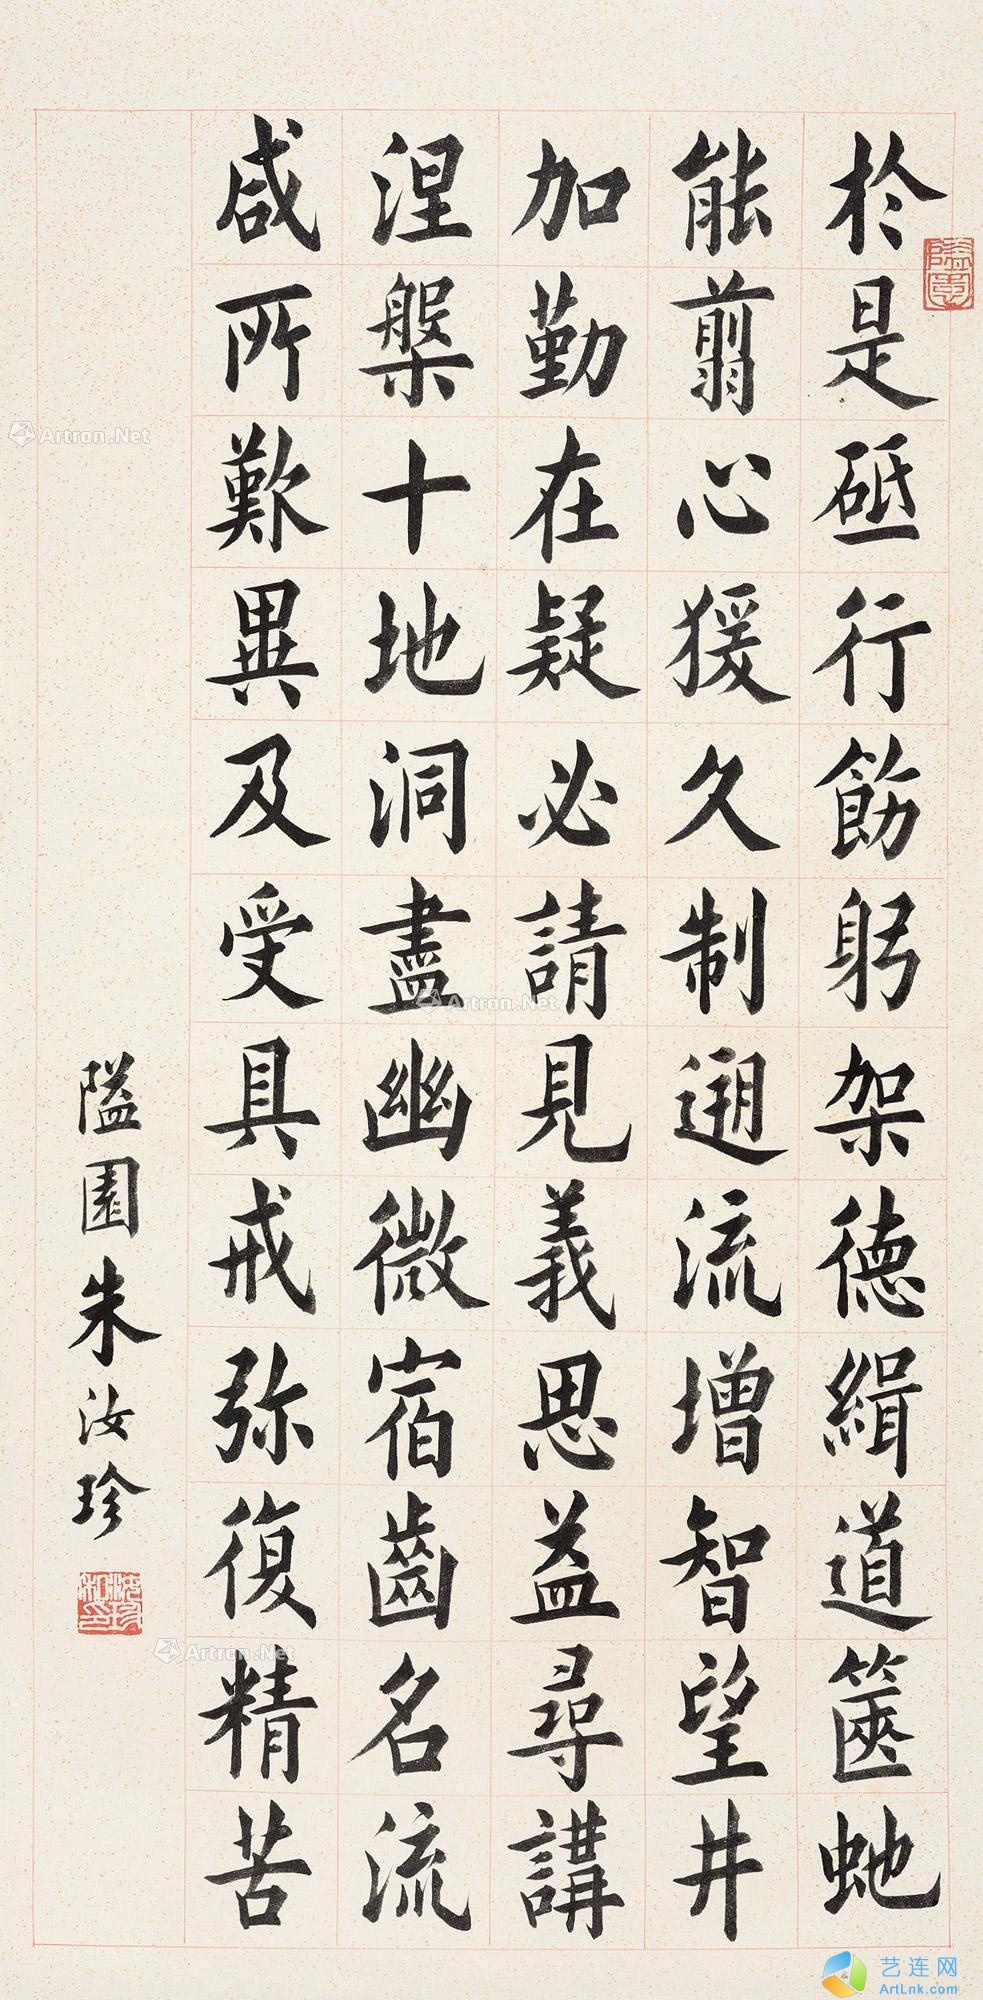 於是砥行飭躬架德緝道篋虵
能翦心猨久制遡流增智望井
加勤在疑必請見義思益尋講
涅槃十地洞盡幽微宿齒名流
咸所歎異及受具戒弥復精苦
隘園朱汝珍
隘園
朱汝珍印
Artron.Net
Artron.Net
Artron.Net
艺连网
ArtLnk.com